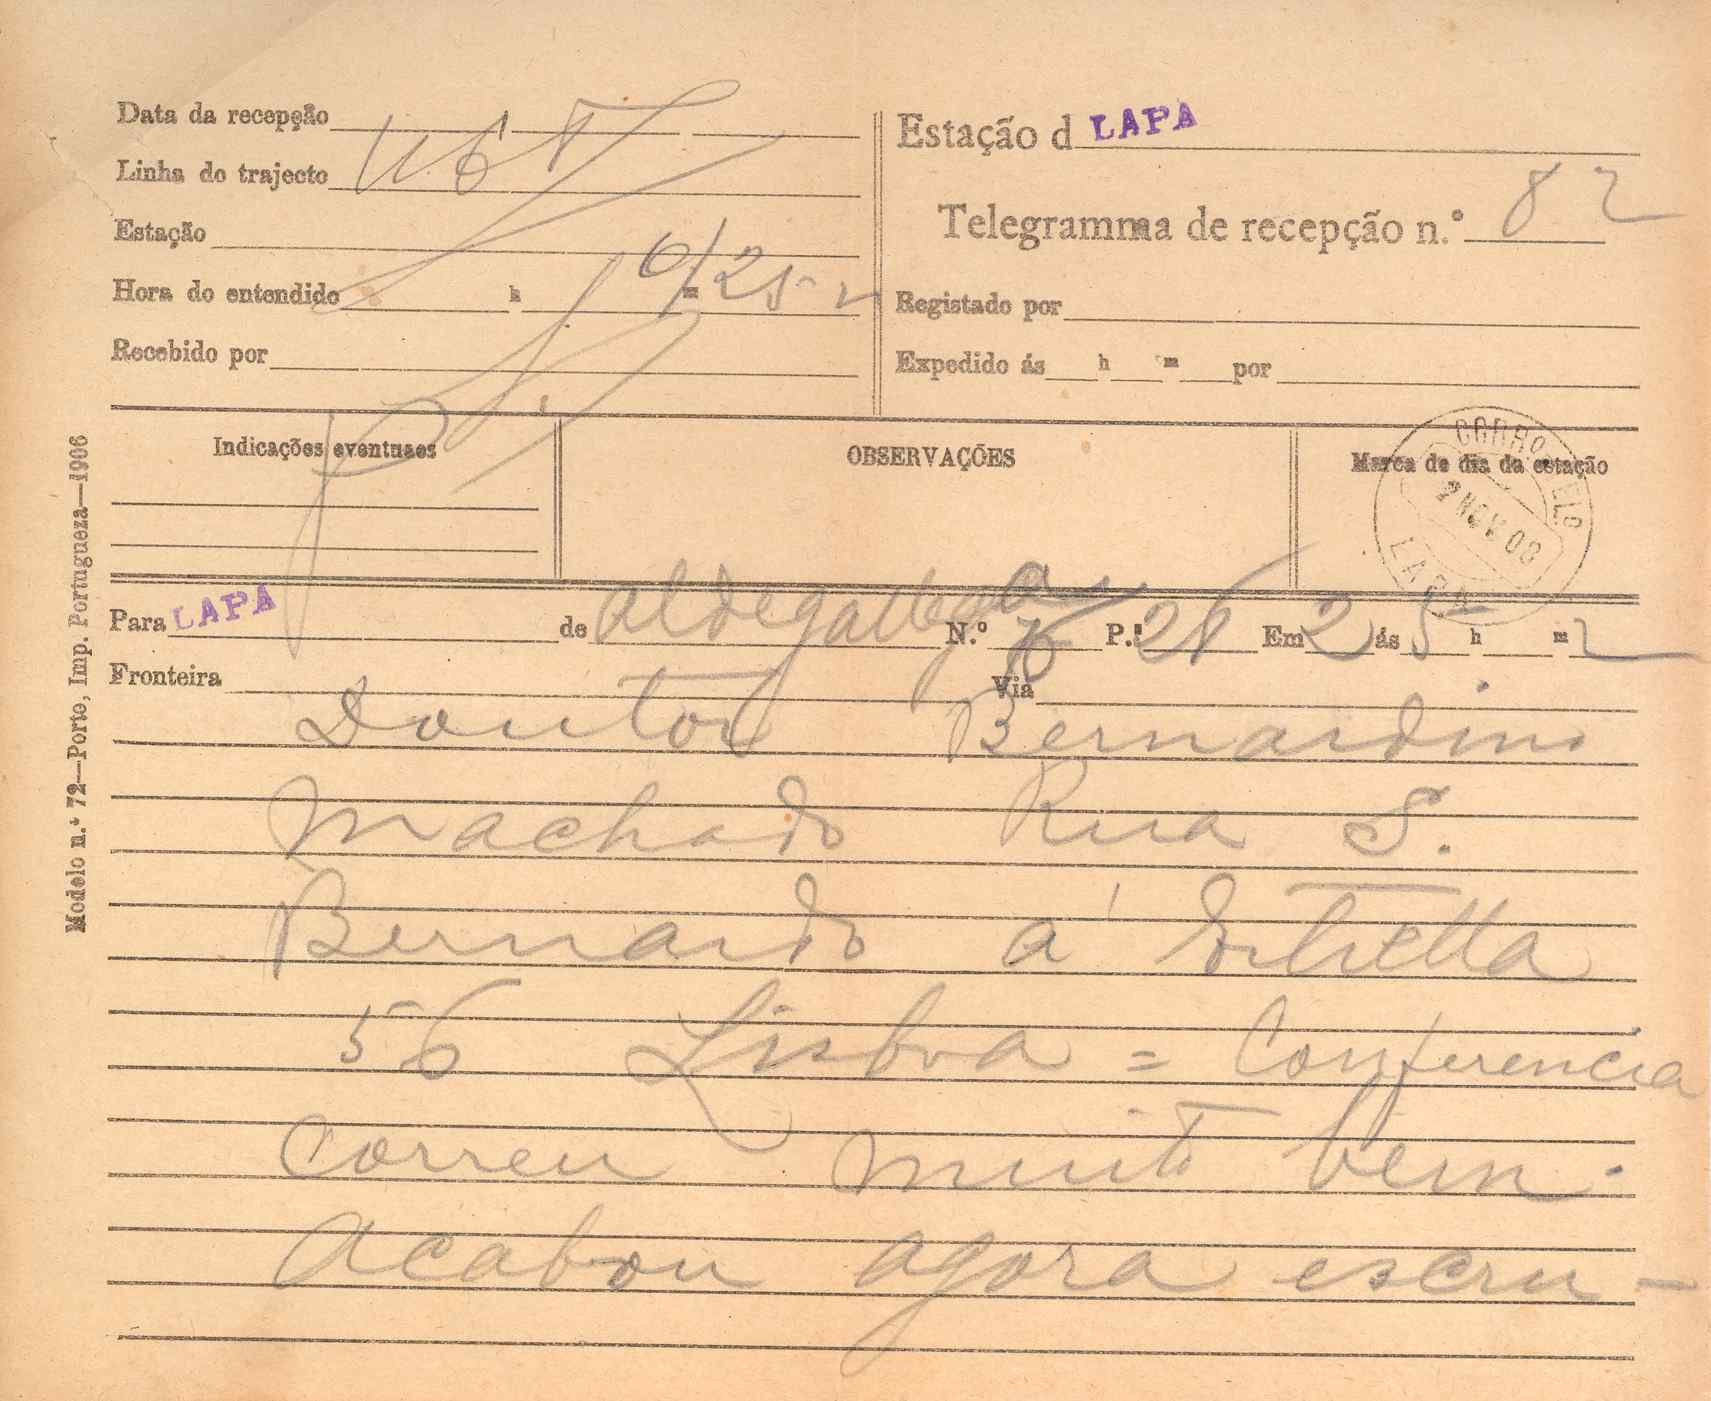 Data da recepção
Linha do trajecto
Estação
Hora do entendido h 6/25 m
Recebido por
Estação d LAPA
Telegramma de recepção n.º 82
Registado por
Expedido ás h m por
Indicações eventuaes
OBSERVAÇÕES
Marca de dia da estação
CORREIO
2 NOV 08
LAPA
Modelo n.º 72—Porto, Imp. Portugueza—1906
Para LAPA de Aldegallega N.º P.as 28 Em 2 ás 5 h m
Fronteira Via
Doutor Bernardino
Machado Rua S.
Bernardo á Estrella
56 Lisboa = Conferencia
correu muito bem.
Acabou agora escru-